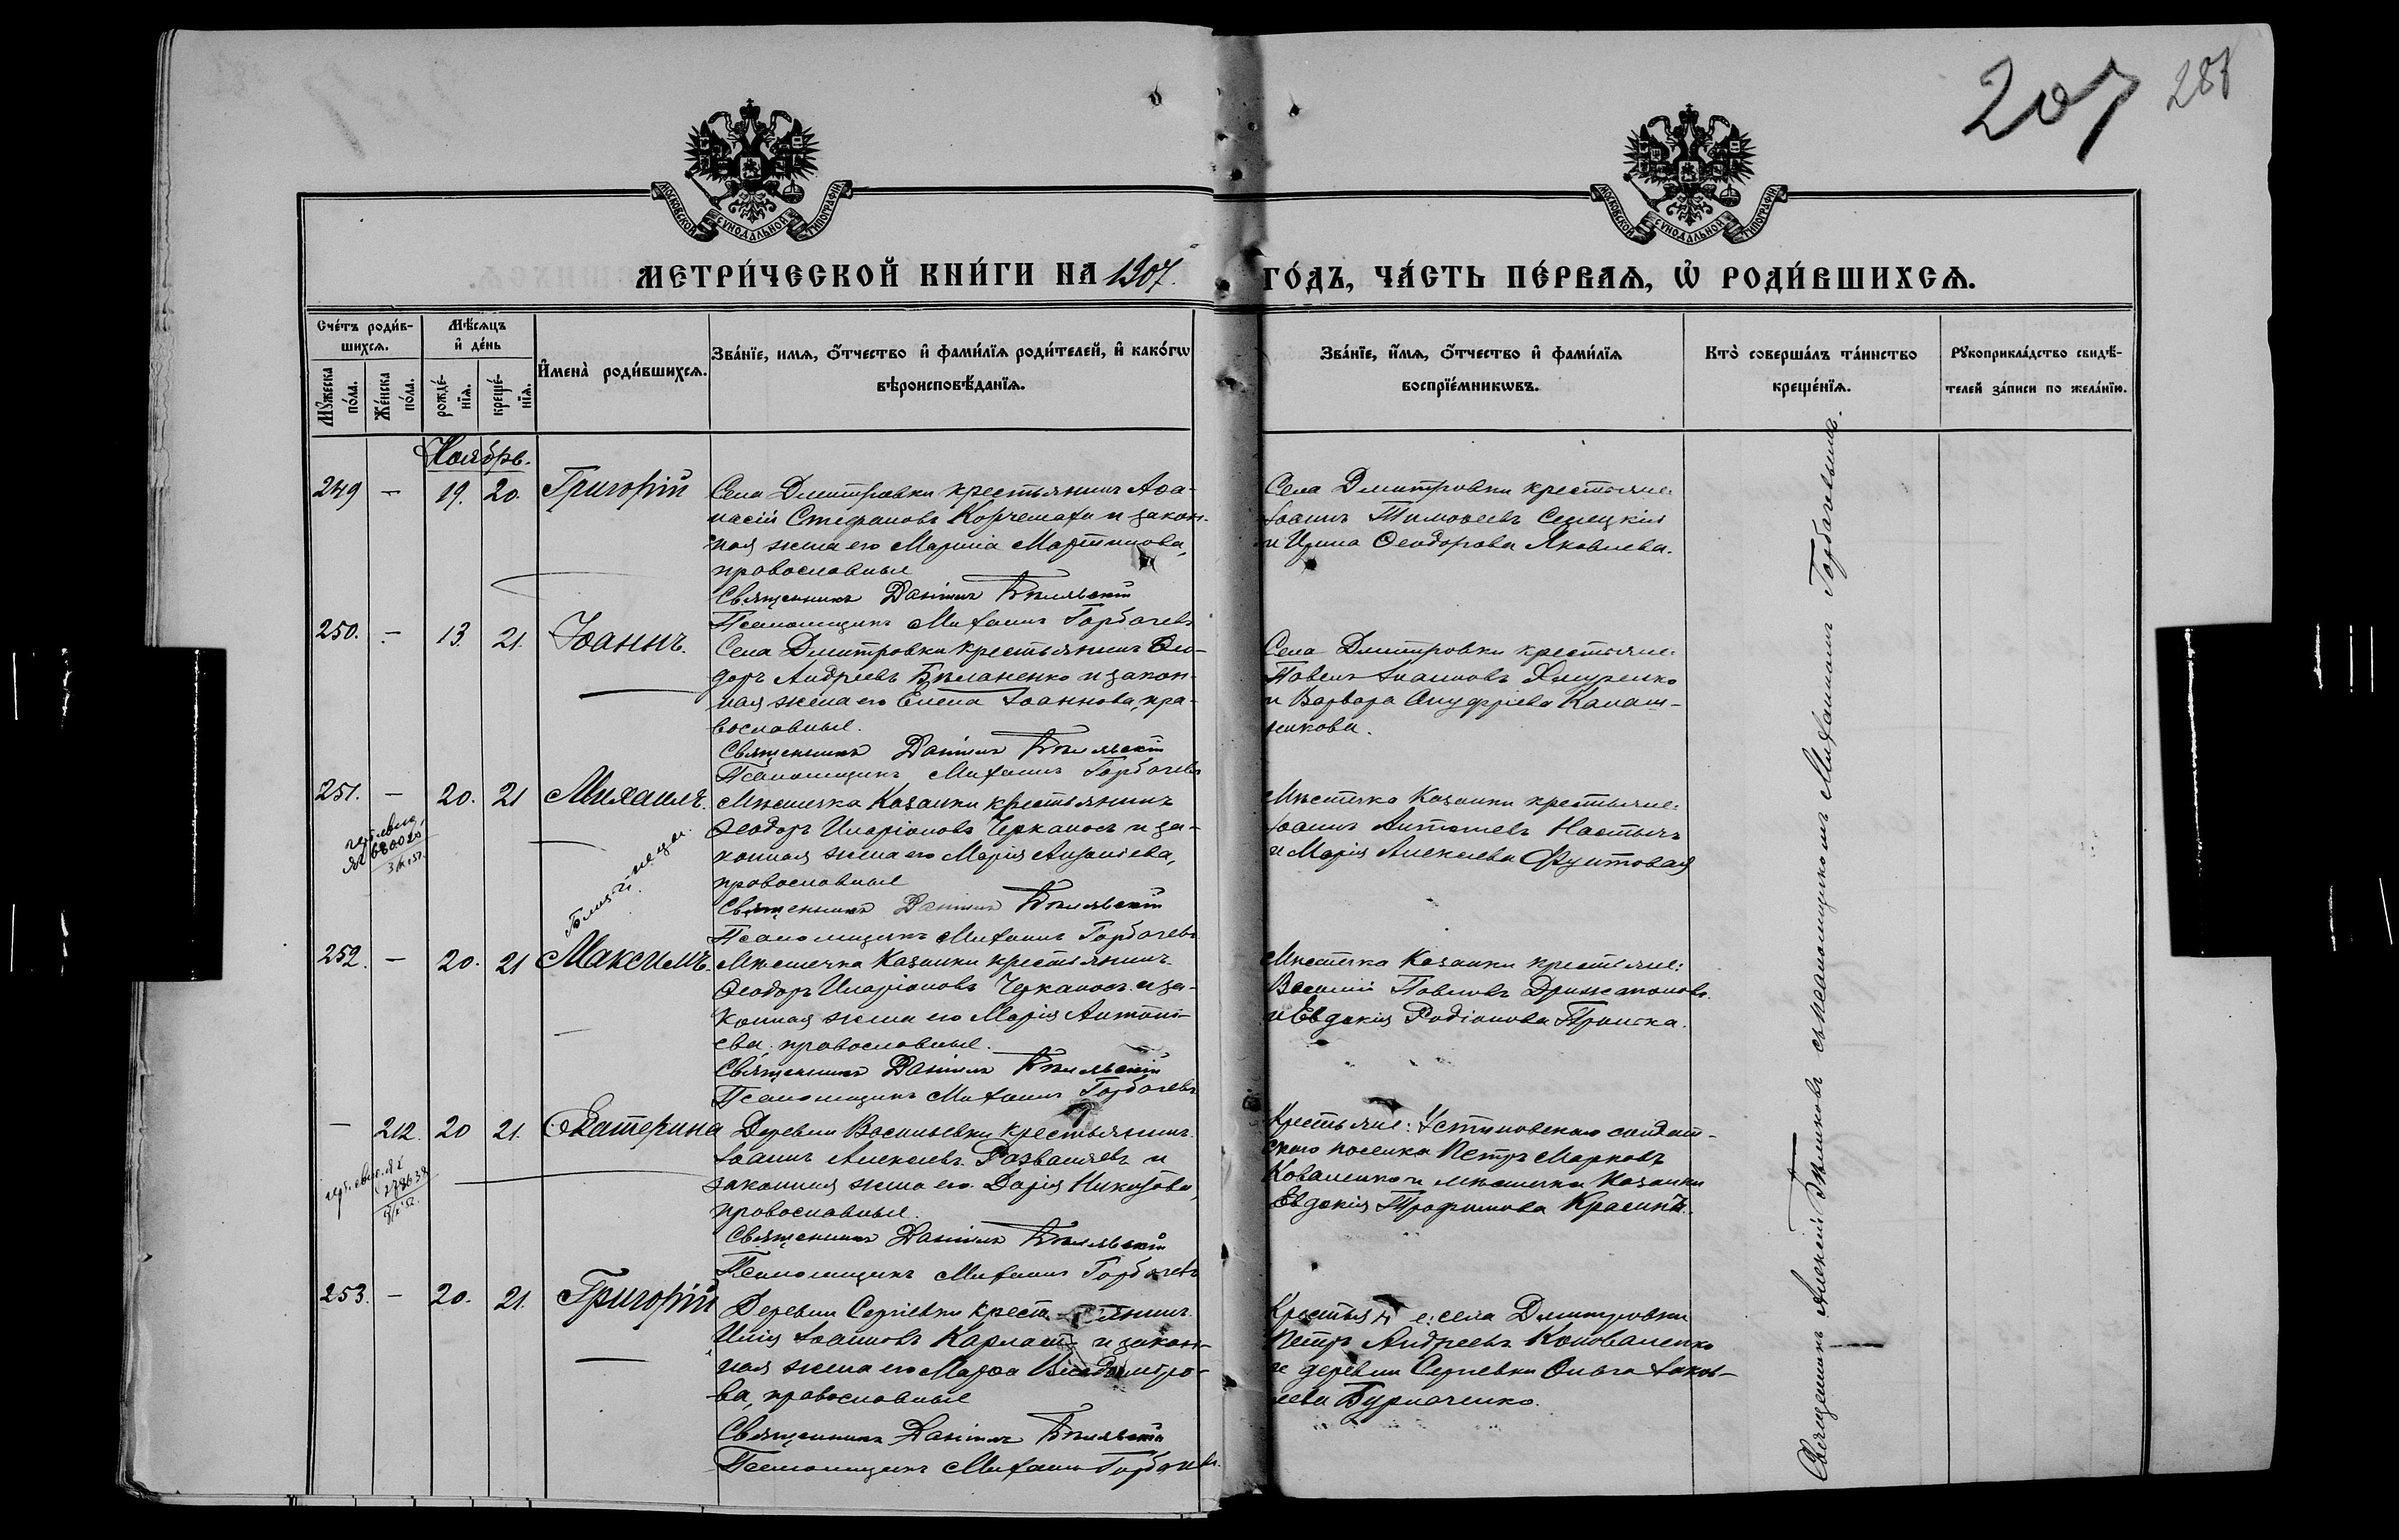 207 281
МОСКОВСКОЙ СѴНОДАЛЬНОЙ ТИПОГРАФІИ
МОСКОВСКОЙ СѴНОДАЛЬНОЙ ТИПОГРАФІИ
МЕТРИ́ЧЕСКОЙ КНИ́ГИ НА 1907. ГО́ДЪ, ЧА́СТЬ ПЕ́РВАѦ, Ѡ҆ РОДИ́ВШИХСѦ.
Сче́тъ роди́вшихсѧ.
Мꙋ́жеска по́ла.
Же́нска по́ла.
Мѣ́сѧцъ и҆ де́нь
рожде́нїѧ.
креще́нїѧ.
И҆мена̀ роди́вшихсѧ.
Зва́нїе, имѧ, ѻ҆́тчество и҆ фами́лїѧ роди́телей, и҆ како́гѡ
вѣроисповѣ́данїѧ.
Зва́нїе, и҆́мѧ, ѻ҆́тчество и҆ фами́лїѧ
воспрїе́мникѡвъ.
Кто̀ соверша́лъ та́инство
креще́нїѧ.
Рꙋкоприкла́дство свидѣ́-
телей за́писи по жела́нїю.
Ноябрь.
249 — 19. 20. Григорій
Села Дмитровки крестьянинъ Аѳа-
насій Стефановъ Корчемаха и закон-
ная жена его Марина Мартинова,
православные
Священникъ Даніилъ
Псаломщикъ Михаилъ Горбачевъ
Села Дмитровки крестьяне:
Іоаннъ Тимоѳеевъ Сенецкій
и Ирина Ѳеодорова Яковлева.
250. — 13. 21. Іоаннъ.
Села Дмитровки крестьянинъ Ѳео-
доръ Андреевъ Бѣланенко и закон-
ная жена его Елена Іоаннова, пра-
вославные.
Священникъ Даніилъ
Псаломщикъ Михаилъ Горбачевъ
Села Дмитровки крестьяне:
Павелъ Іоанновъ
и Варвара Онуфріева Калаш-
никова.
251. — 20. 21 Михаилъ.
№ 680020
Близнецы.
Мѣстечка Казанки крестьянинъ
Ѳеодоръ Иларіоновъ Черканосъ и за-
конная жена его Марія Антоніева,
православные
Священникъ Даніилъ
Псаломщикъ Михаилъ Горбачевъ
Мѣстечка Казанки крестьяне:
Іоаннъ Антоніевъ
и Марія Алексѣева Фунтовая
252. — 20. 21 Максимъ.
Мѣстечка Казанки крестьянинъ
Ѳеодоръ Иларіоновъ Черканосъ и за-
конная жена его Марія Антоні-
ева, православные.
Священникъ Даніилъ
Псаломщикъ Михаилъ Горбачевъ
Мѣстечка Казанки крестьяне:
Василій Павловъ
и Евдокія Родіонова
— 212. 20 21. Екатерина
Деревни Васильевки крестьянинъ
Іоаннъ Алексѣевъ Разваляевъ и
законная жена его Дарія
православные.
Священникъ Даніилъ
Псаломщикъ Михаилъ Горбачевъ
Крестьяне: Устиновскаго солдат-
скаго поселка Петръ Марковъ
Коваленко и мѣстечка Казанки
Евдокія Трофимова
253. — 20. 21. Григорій
Деревни Сергіевки крестьянинъ
Илія Іоанновъ Карлаш и закон-
ная жена его Марѳа
ва, православные
Священникъ Даніилъ
Псаломщикъ Михаилъ Горбачевъ
Крестьяне: села Дмитровки
Петръ Андреевъ Коноваленко
и деревни Сергіевки Ольга Іаков-
лева Бурлаченко.
Священникъ Алексій Бѣликовъ съ псаломщикомъ Михаиломъ Горбачевымъ.